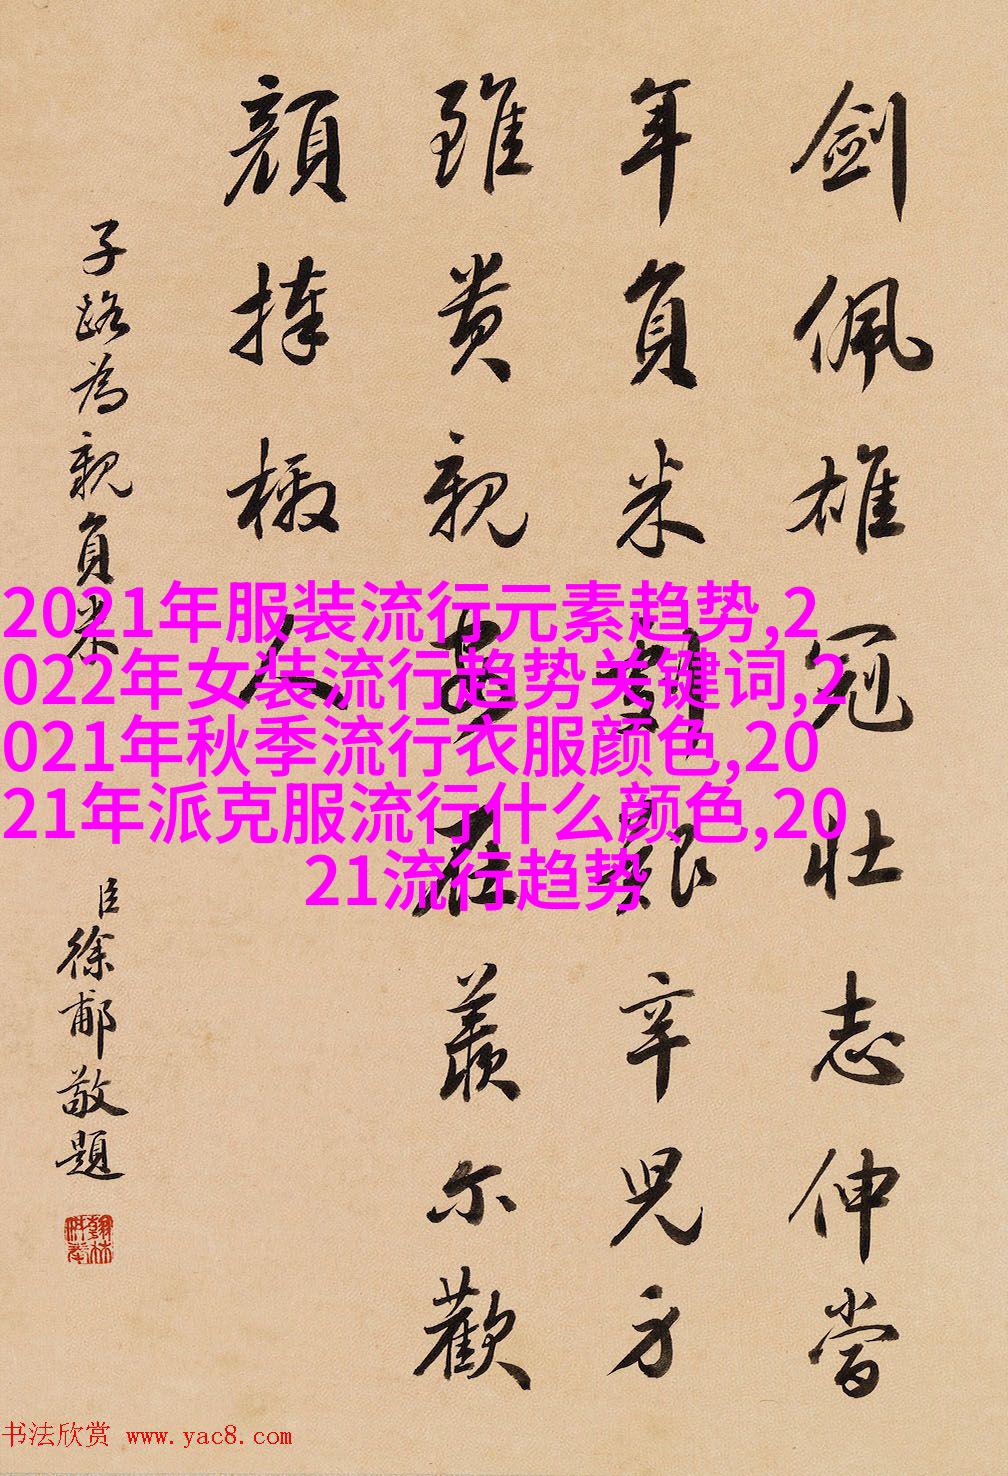 劍佩雄冠壯志伸當
年負米劇艱辛兒方
雖貴親在羨爾歡
顏捧檄人
子路為親負米
臣徐郙敬題
2021年服装流行元素趋势,2
022年女装流行趋势关键词,2
021年秋季流行衣服颜色,20
21年派克服流行什么颜色,20
21流行趋势
书法欣赏 www.yac8.com